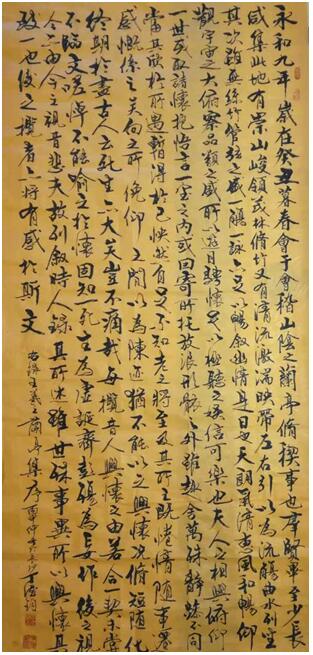 永和九年歲在癸丑暮春會于會稽山陰之蘭亭脩禊事也群賢畢至少長
咸集此地有崇山峻領茂林脩竹又有清流激湍映帶左右引以為流觴曲水列坐
其次雖無絲竹管弦之盛一觴一詠亦足以暢敘幽情是日也天朗氣清惠風和暢仰
觀宇宙之大俯察品類之盛所以遊目騁懷足以極視聽之娛信可樂也夫人之相與俯仰
一世或取諸懷抱悟言一室之內或因寄所托放浪形骸之外雖趣舍萬殊靜躁不同
當其欣於所遇暫得於己怏然自足不知老之將至及其所之既惓情隨事遷
感慨係之矣向之所欣俛仰之間以為陳迹猶不能不以之興懷況脩短隨化
終期於盡古人云死生亦大矣豈不痛哉每攬昔人興懷之由若合一契未嘗
不臨文嗟悼不能喻之於懷固知一死生為虛誕齊彭殤為妄作後之視
今亦由今之視昔悲夫故列敘時人錄其所述雖世殊事異所以興懷其
致一也後之攬者亦將有感於斯文
右錄王羲之蘭亭集序